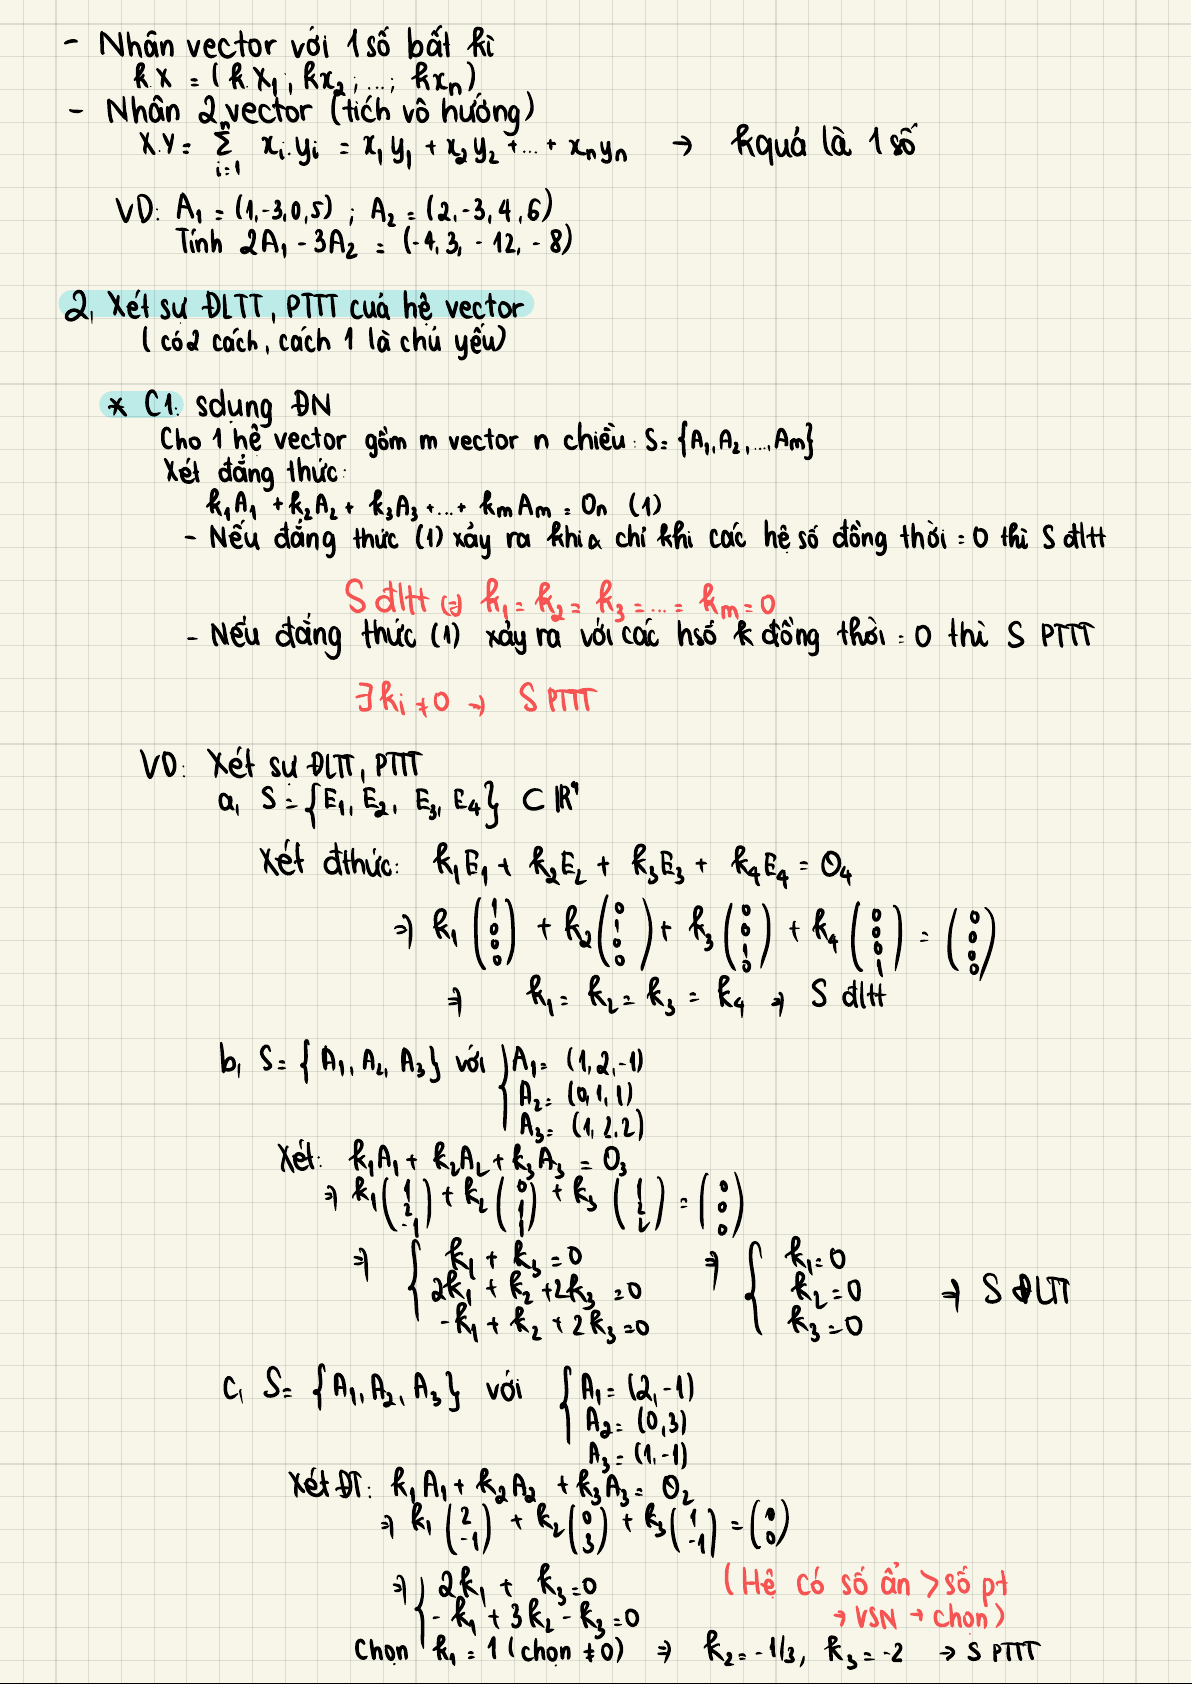 - Nhân vector với 1 số bất kì
k.X = (k.X₁, kx₂; ...; kxₙ)
- Nhân 2 vector (tích vô hướng)
X.Y = ∑ⁿᵢ₌₁ xᵢ.yᵢ = x₁y₁ + x₂y₂ + ... + xₙyₙ → kquả là 1 số
VD: A₁ = (1,-3,0,5) ; A₂ = (2,-3,4,6)
Tính 2A₁ - 3A₂ = (-4, 3, -12, -8)
2, Xét sự ĐLTT, PTTT của hệ vector
(có 2 cách, cách 1 là chủ yếu)
* C1: sdụng ĐN
Cho 1 hệ vector gồm m vector n chiều: S = {A₁, A₂, ..., Am}
Xét đẳng thức:
k₁A₁ + k₂A₂ + k₃A₃ + ... + kmAm = 0ₙ (1)
- Nếu đẳng thức (1) xảy ra khi & chỉ khi các hệ số đồng thời = 0 thì S đltt
S đltt ⇔ k₁ = k₂ = k₃ = ... = km = 0
- Nếu đẳng thức (1) xảy ra với các hsố k đồng thời = 0 thì S PTTT
∃ kᵢ ≠ 0 → S PTTT
VD: Xét sự ĐLTT, PTTT
a, S = {E₁, E₂, E₃, E₄} ⊂ ℝ⁴
Xét đthức: k₁E₁ + k₂E₂ + k₃E₃ + k₄E₄ = O₄
⇒ k₁ (1 0 0 0) + k₂ (0 1 0 0) + k₃ (0 0 1 0) + k₄ (0 0 0 1) = (0 0 0 0)
⇒ k₁ = k₂ = k₃ = k₄ ⇒ S đltt
b, S = {A₁, A₂, A₃} với { A₁ = (1, 2, -1)
A₂ = (0, 1, 1)
A₃ = (1, 2, 2)
Xét: k₁A₁ + k₂A₂ + k₃A₃ = O₃
⇒ k₁ (1 2 -1) + k₂ (0 1 1) + k₃ (1 2 2) = (0 0 0)
⇒ { k₁ + k₃ = 0 ⇒ { k₁ = 0
2k₁ + k₂ + 2k₃ = 0 k₂ = 0 ⇒ S ĐLTT
-k₁ + k₂ + 2k₃ = 0 k₃ = 0
c, S = {A₁, A₂, A₃} với { A₁ = (2, -1)
A₂ = (0, 3)
A₃ = (1, -1)
Xét ĐT: k₁A₁ + k₂A₂ + k₃A₃ = O₂
⇒ k₁ (2 -1) + k₂ (0 3) + k₃ (1 -1) = (0 0)
⇒ { 2k₁ + k₃ = 0 (Hệ có số ẩn > số pt
-k₁ + 3k₂ - k₃ = 0 → VSN → chọn)
Chọn k₁ = 1 (chọn ≠ 0) ⇒ k₂ = -1/3, k₃ = -2 → S PTTT